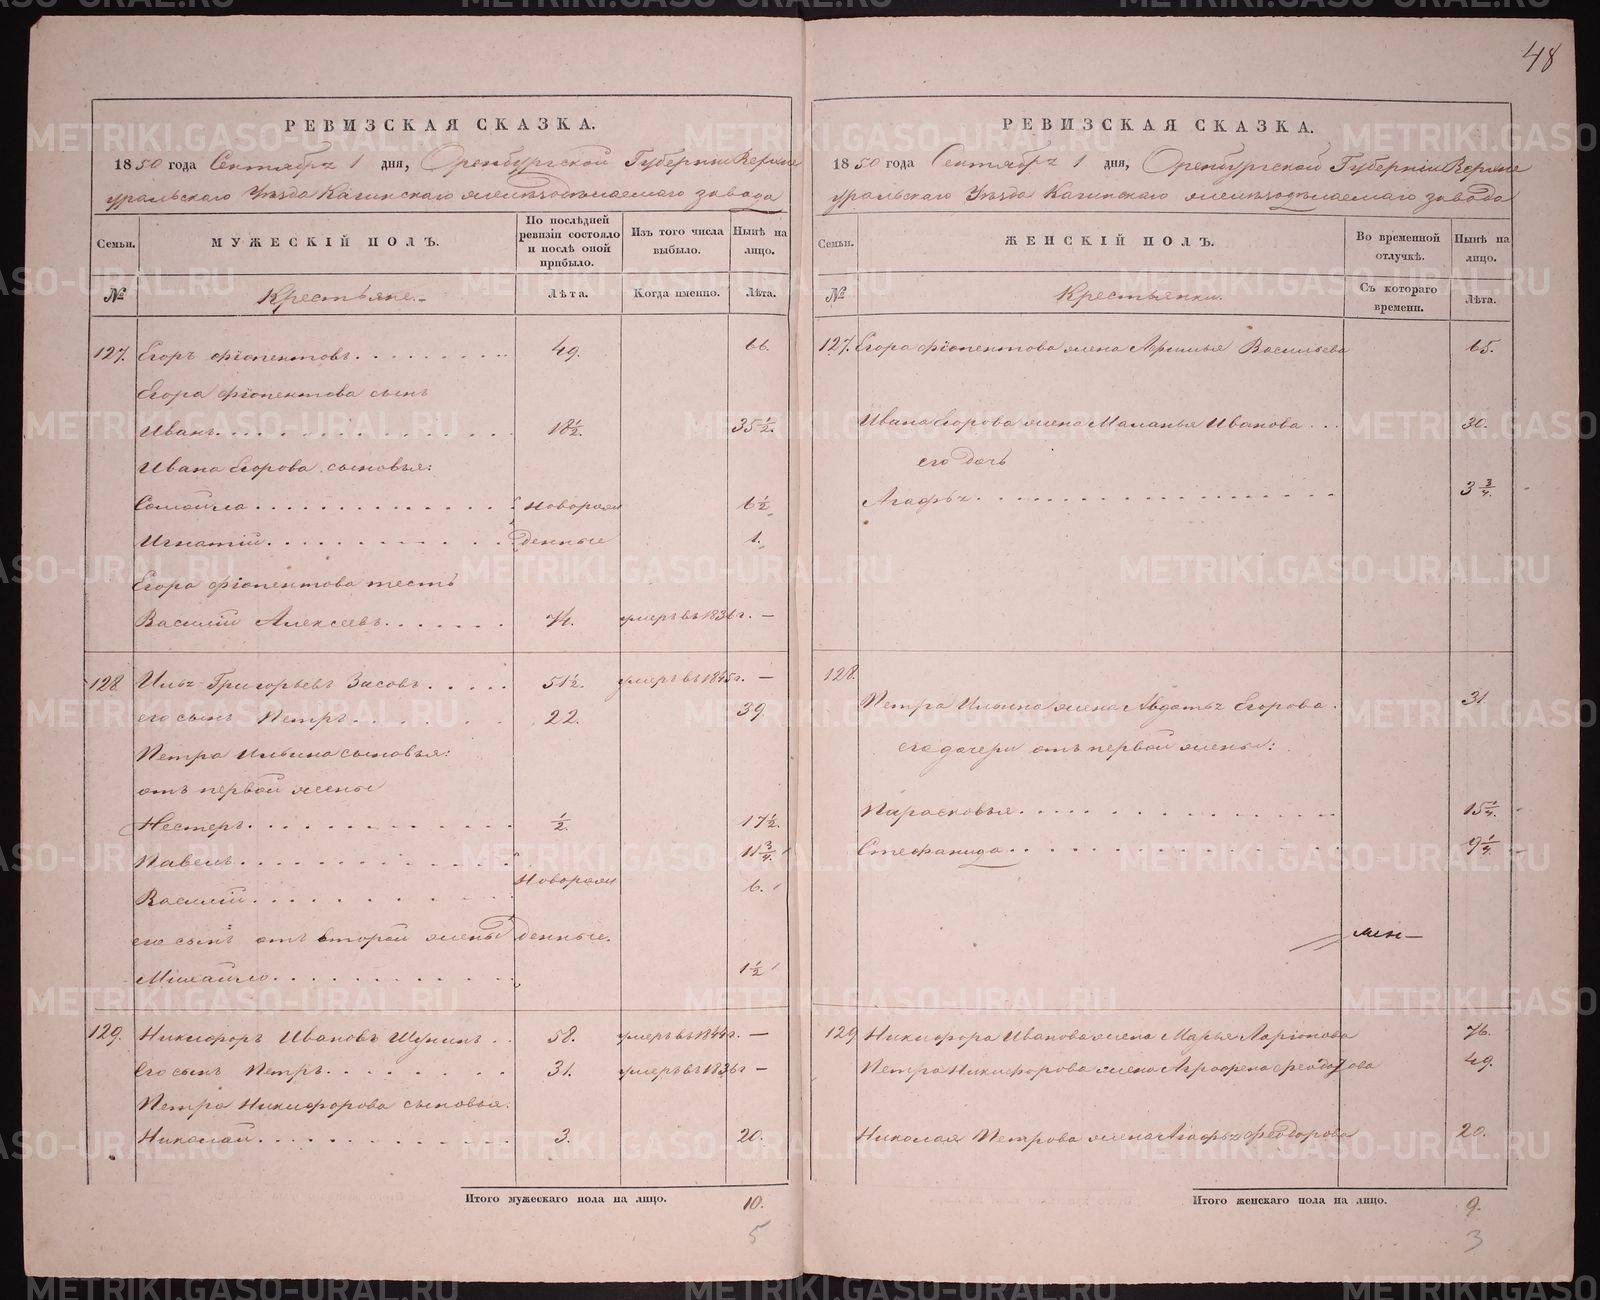 48
РЕВИЗСКАЯ СКАЗКА.
1850 года Сентября 1 дня, Оренбургской Губернiи Верхне
уральскаго Уѣзда Кагинскаго желѣзодѣлаемаго завода
Семьи.
МУЖЕСКIЙ ПОЛЪ.
По послѣдней ревизiи состояло и послѣ оной прибыло.
Изъ того числа выбыло.
Нынѣ на лицо.
№
Крестьяне.
Лѣта.
Когда именно.
Лѣта.
127. Егоръ Фiопентовъ 49. 66.
Егора Фiопентова сынъ
Иванъ 18½. 35½.
Ивана Егорова сыновья:
Самойла новорож 6½
Игнатiй денные 1.
Егора Фiопентова тесть
Василiй Алексеевъ 74. умеръ въ 1836 г. —
128 Илья Григорьевъ Засовъ 51½. умеръ въ 1845 г. —
его сынъ Петръ 22. 39.
Петра Ильина сыновья:
отъ первой жены
Нестеръ ½. 17½.
Павелъ 11¾
Василiй Новорож 6.
его сынъ отъ второй жены денные.
Михайло 1½
129. Никифоръ Ивановъ Шунинъ 58. умеръ въ 1844 г. —
Его сынъ Петръ 31. умеръ въ 1836 г —
Петра Никифорова сыновья:
Николай 3. 20.
Итого мужескаго пола на лицо. 10.
5
РЕВИЗСКАЯ СКАЗКА.
1850 года Сентября 1 дня, Оренбургской Губернiи Верхне
уральскаго Уѣзда Кагинскаго желѣзодѣлаемаго завода
Семьи.
ЖЕНСКIЙ ПОЛЪ.
Во временной отлучкѣ.
Нынѣ на лицо.
№
Крестьянки.
Съ котораго времени.
Лѣта.
127. Егора Фiопентова жена Афимья Васильева 65.
Ивана Егорова жена Маланья Иванова 30.
его дочь
Агафья 3¾.
128.
Петра Ильина жена Авдотья Егорова 31.
его дочери отъ первой жены:
Парасковья 15¼.
Стефанида 9¼.
129 Никифора Иванова жена Марья Ларiонова 76.
Петра Никифорова жена Аграфена Феодотова 49.
Николая Петрова жена Агафья Феодорова 20.
Итого женскаго пола на лицо. 9.
3
METRIKI.GASO-URAL.RU